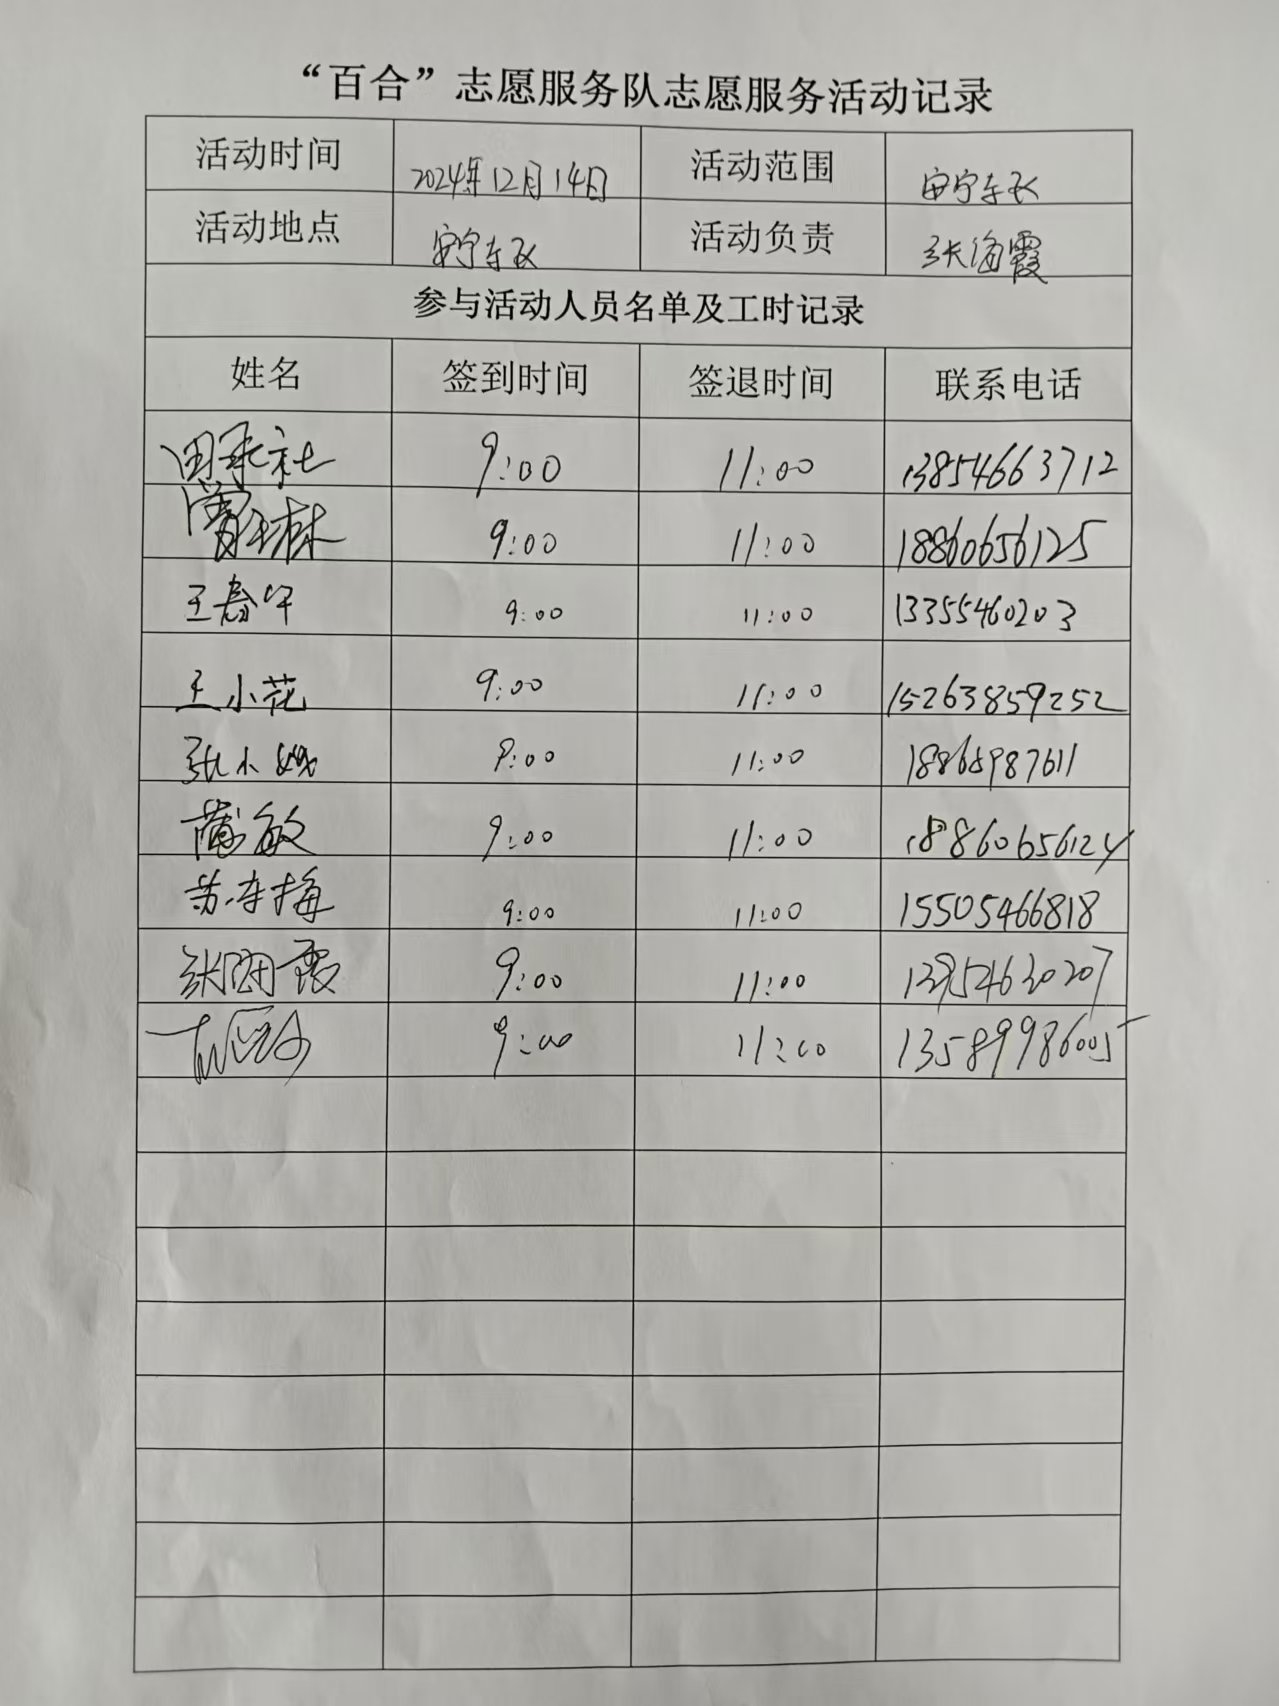 “百合”志愿服务队志愿服务活动记录
活动时间 2024年12月14日 活动范围 安宁东区
活动地点 安宁东区 活动负责 张海霞
参与活动人员名单及工时记录
姓名 签到时间 签退时间 联系电话
田承社 9:00 11:00 13854663712
9:00 11:00 18860656125
王春华 9:00 11:00 13355460203
王小花 9:00 11:00 15263859252
张小娥 9:00 11:00 18865987611
蒲敏 9:00 11:00 18860656124
苏冬梅 9:00 11:00 15505466818
张海霞 9:00 11:00 13954630207
9:00 11:00 13589986005